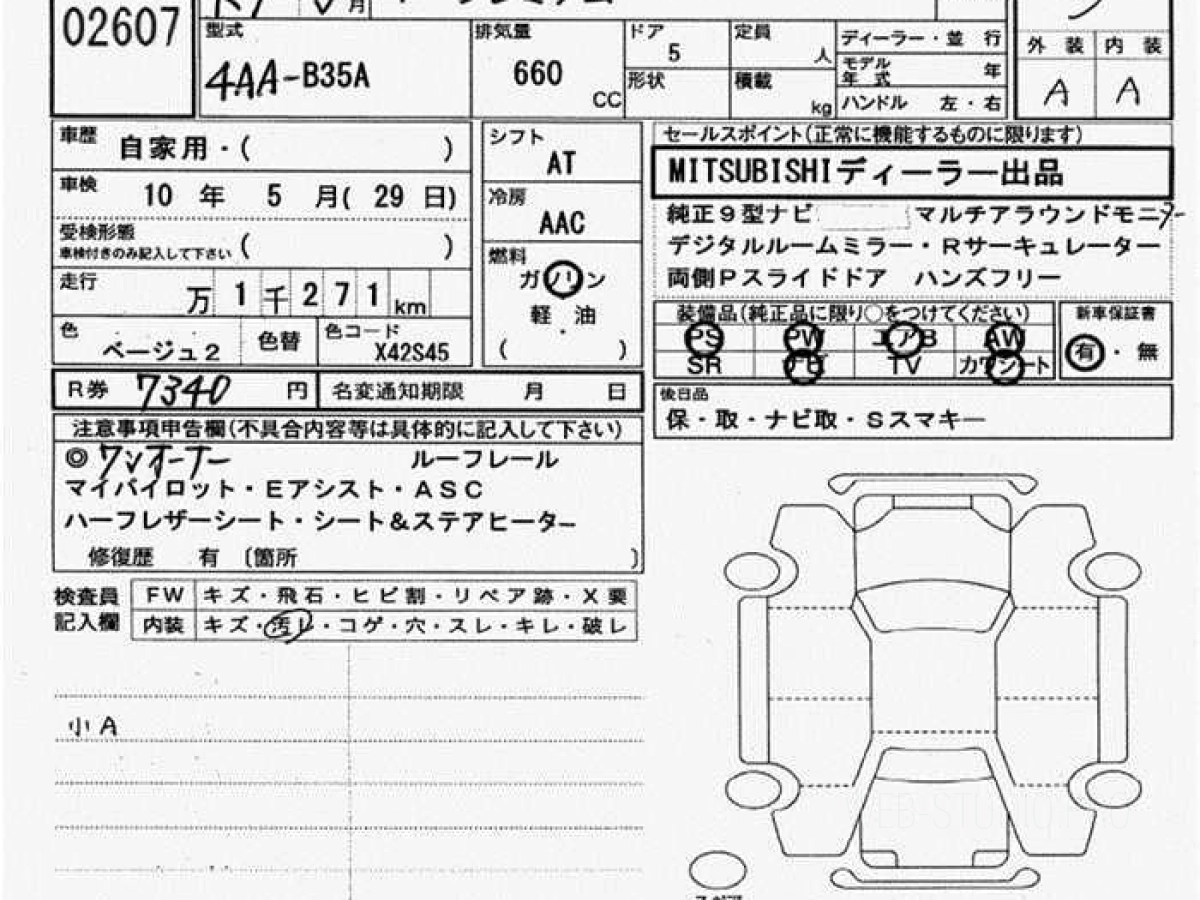 02607
月
型式
4AA-B35A
排気量
660
CC
ドア
5
形状
定員
人
積載
kg
ディーラー・並 行
モデル
年 式
年
ハンドル 左・右
外 装
内 装
A
A
車歴
自家用・( )
車検
10 年 5 月( 29 日)
受検形態
車検付きのみ記入して下さい ( )
走行
万 1 千 2 7 1 km
色
ベージュ2
色替
色コード
X42S45
シフト
AT
冷房
AAC
燃料
ガソリン
軽 ・ 油
( )
セールスポイント(正常に機能するものに限ります)
MITSUBISHIディーラー出品
純正9型ナビ マルチアラウンドモニター
デジタルルームミラー・Rサーキュレーター
両側Pスライドドア ハンズフリー
装備品(純正品に限り○をつけてください)
PS PW エアB AW
SR ナビ TV カワシート
新車保証書
有 ・ 無
R券 7340 円
名変通知期限 月 日
後日品
保・取・ナビ取・Sスマキー
注意事項申告欄(不具合内容等は具体的に記入して下さい)
◎ワンオーナー ルーフレール
マイパイロット・Eアシスト・ASC
ハーフレザーシート・シート&ステアヒーター
修復歴 有 〔箇所 〕
検査員
記入欄
FW キズ・飛石・ヒビ割・リペア跡・X要
内装 キズ・汚レ・コゲ・穴・スレ・キレ・破レ
小A